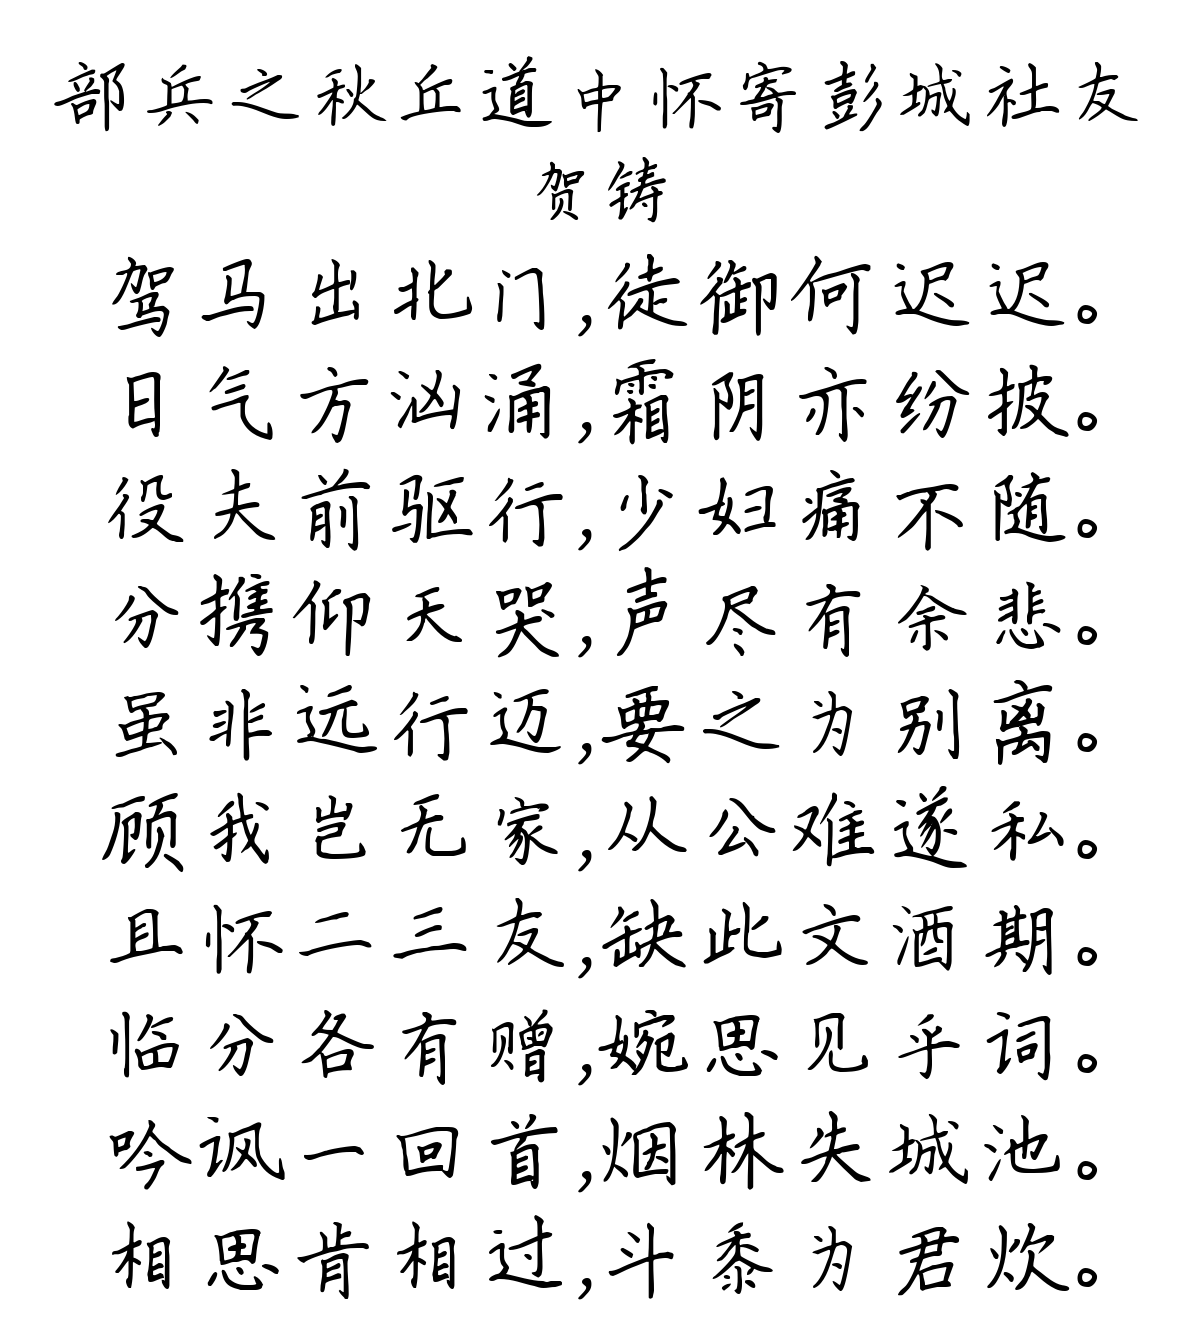 部兵之秋丘道中怀寄彭城社友
贺铸
驾马出北门,徒御何迟迟。
日气方汹涌,霜阴亦纷披。
役夫前驱行,少妇痛不随。
分携仰天哭,声尽有余悲。
虽非远行迈,要之为别离。
顾我岂无家,从公难遂私。
且怀二三友,缺此文酒期。
临分各有赠,婉思见乎词。
吟讽一回首,烟林失城池。
相思肯相过,斗黍为君炊。